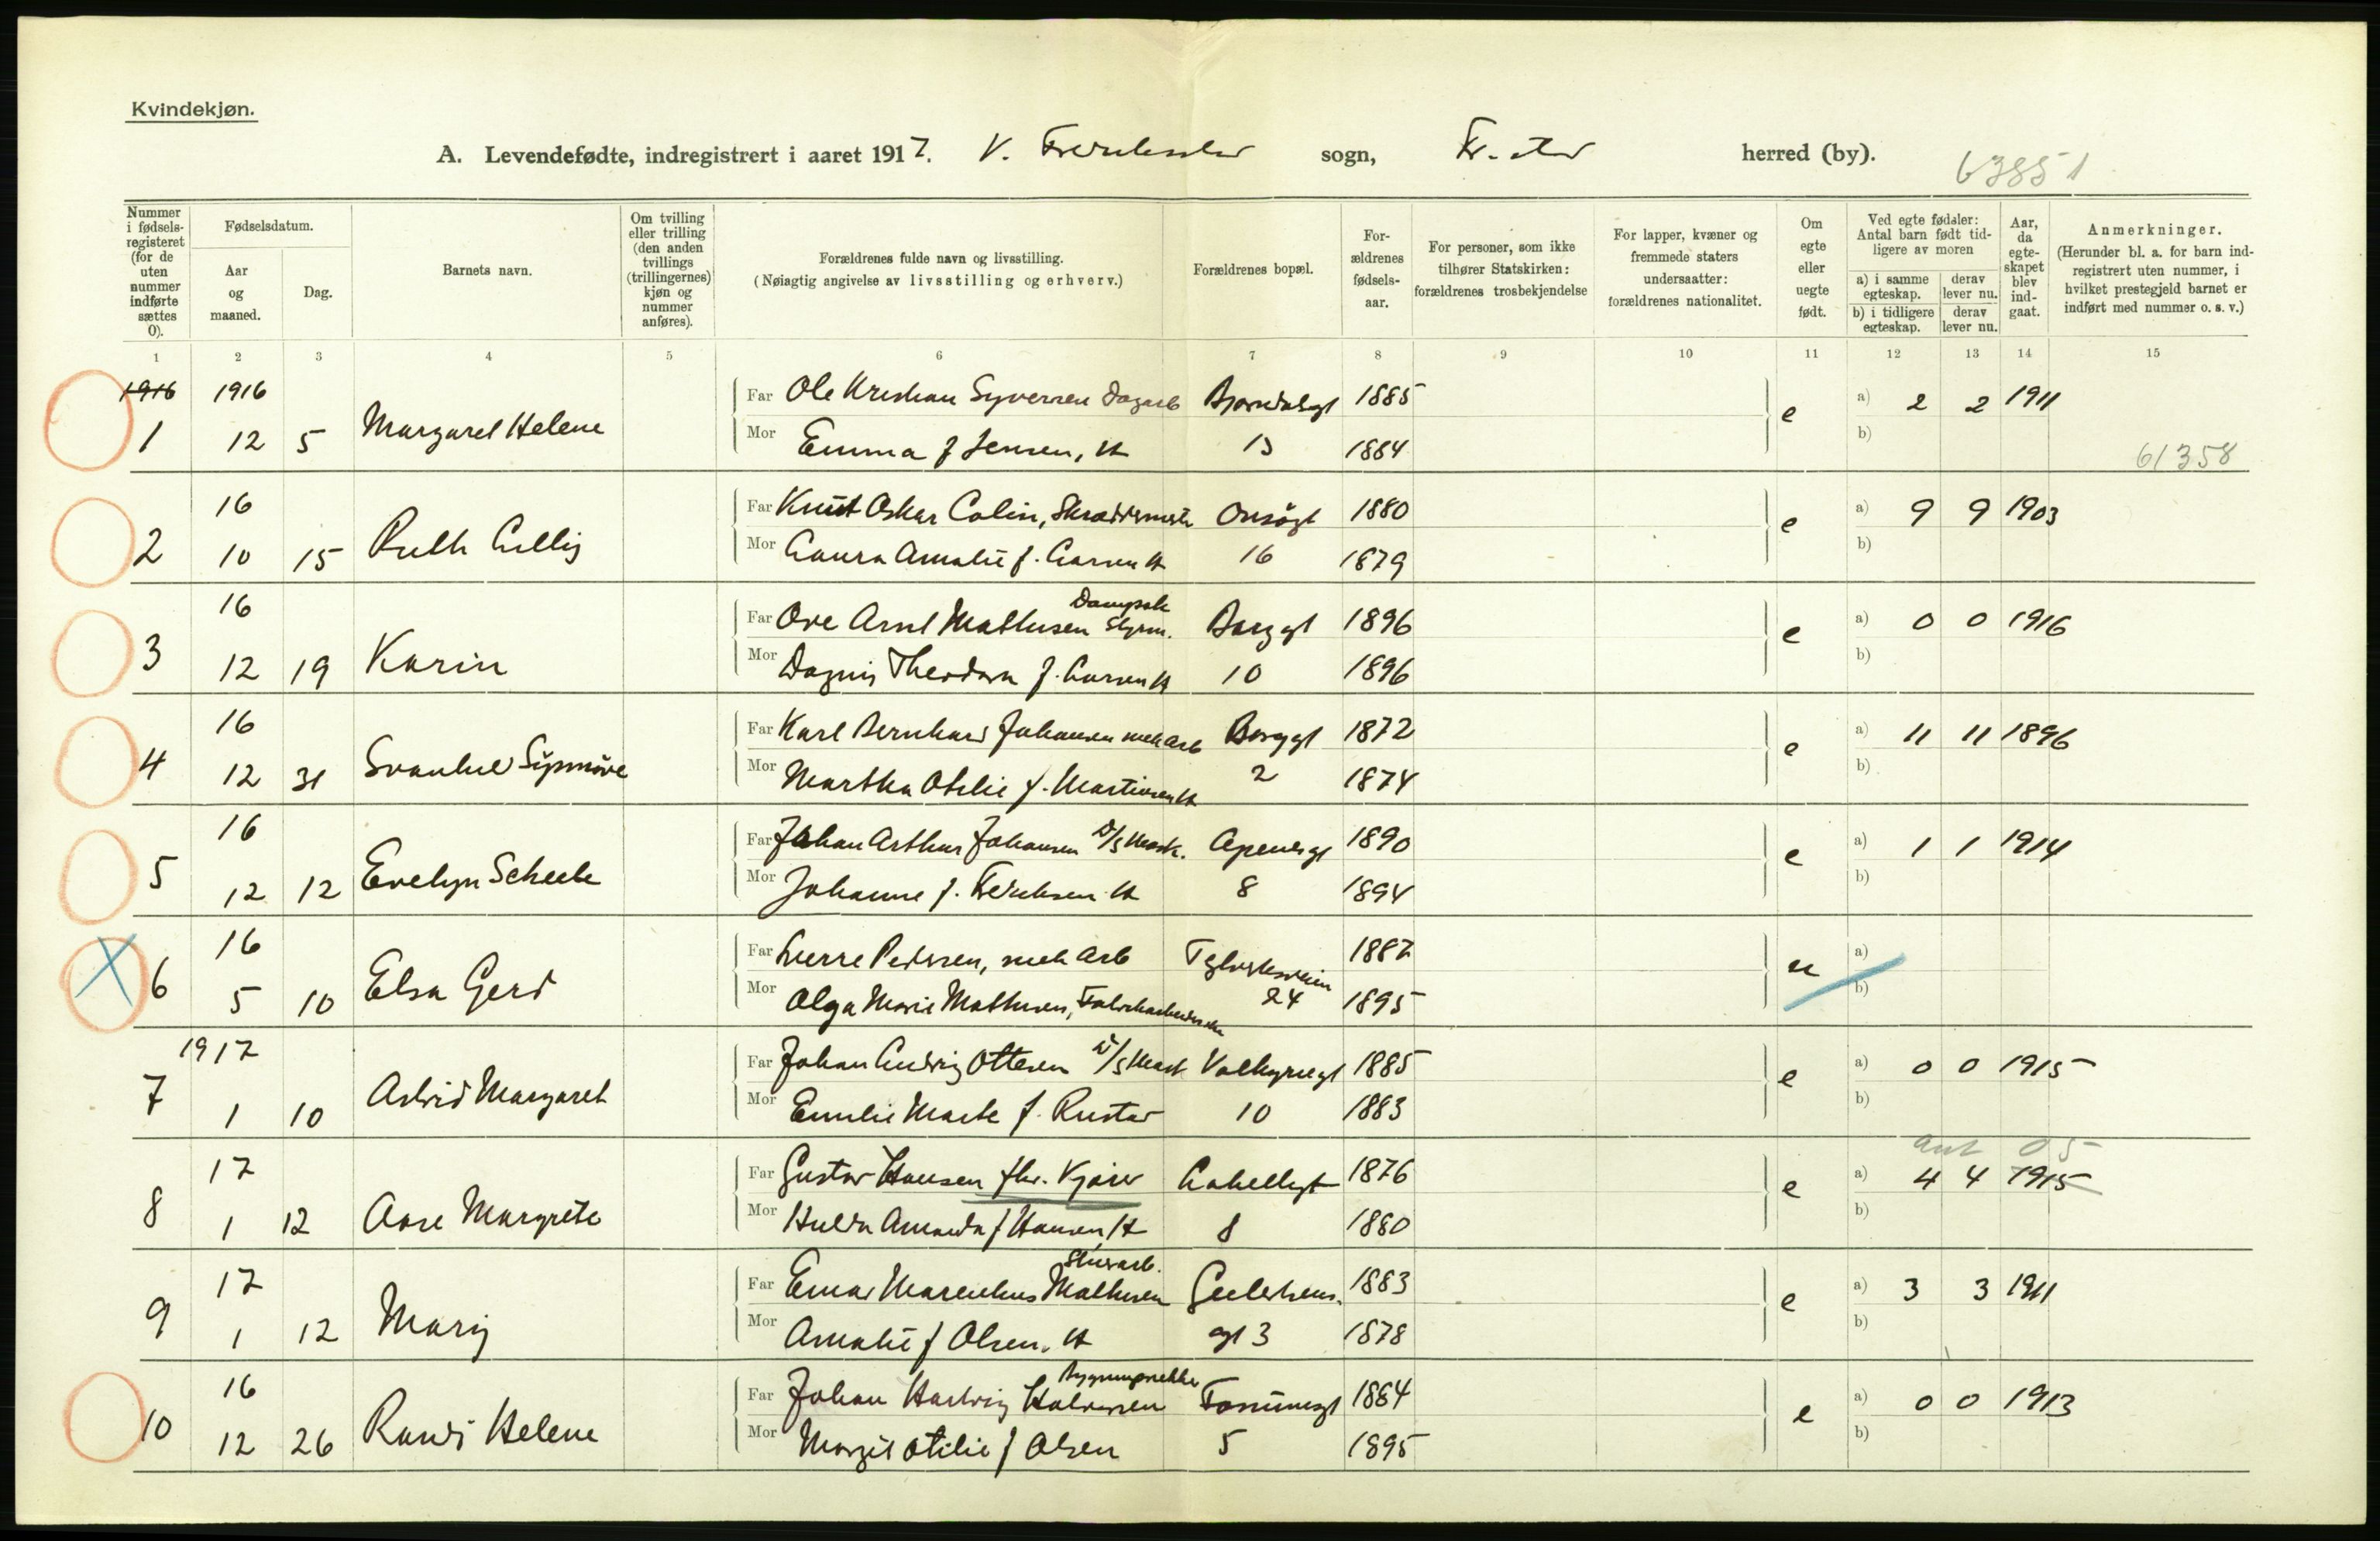 Kvindekjøn.
A. Levendefødte, indregistrert i aaret 1917. V. Fredrikstad sogn, Fr.stad herred (by).
63851
Nummer i fødselsregisteret (for de uten nummer indførte sættes 0).
Fødselsdatum.
Aar og maaned.
Dag.
Barnets navn.
Om tvilling eller trilling (den anden tvillings (trillingernes) kjøn og nummer anføres).
Forældrenes fulde navn og livsstilling.
(Nøiagtig angivelse av livsstilling og erhverv.)
Forældrenes bopæl.
Forældrenes fødselsaar.
For personer, som ikke tilhører Statskirken: forældrenes trosbekjendelse
For lapper, kvæner og fremmede staters undersaatter: forældrenes nationalitet.
Om egte eller uegte født.
Ved egte fødsler: Antal barn født tidligere av moren
a) i samme egteskap.
derav lever nu.
b) i tidligere egteskap.
derav lever nu.
Aar, da egteskapet blev indgaat.
Anmerkninger.
(Herunder bl. a. for barn indregistrert uten nummer, i hvilket prestegjeld barnet er indført med nummer o. s. v.)
1 2 3 4 5 6 7 8 9 10 11 12 13 14 15
1916 1916 Far Ole Kristian Syversen Dagarb 1885 a) 2 2 1911
1 12 5 Margaret Helene e
Mor Emma f Jensen, H 13 1884 b)
61358
16 Far Knut Oskar Colin, Skræddermester Onsøgt 1880 a) 9 9 1903
2 10 15 Ruth Lilly e
Mor Laura Amalie f. Larsen H 16 1879 b)
16 Far Ove Arnt Mathisen Dampsk Styrm. Borggt 1896 a) 0 0 1916
3 12 19 Karin e
Mor Dagny Theodora f. Larsen H 10 1896 b)
16 Far Karl Bernhard Johansen mek arb Borggt 1872 a) 11 11 1896
4 12 31 Svanhil e
Mor Martha Otilie f. Martinsen H 2 1874 b)
16 Far Johan Arthur Johansen D/S Mask. Apenesgt 1890 a) 1 1 1914
5 12 12 Evelyn Scheele e
Mor Johanne f. Fredriksen H 8 1894 b)
16 Far Sverre Pedersen, mek Arb Teglverksveien 1887 a)
6 5 10 Elsa Gerd u
Mor Olga Marie Mathisen, Fabrikarbeiderske 24 1895 b)
1917 Far Johan Ludvig Ottesen D/S Mask Valkyriegt 1885 a) 0 0 1915
7 1 10 Astrid Margaret e
Mor Emilie Marie f. Rustad 10 1883 b)
ant 05
17 Far Gustav Hansen fhv. Kjører Labellsgt 1876 a) 4 4 1915
8 1 12 Aase Margrete e
Mor Hulda Amanda f Hansen H 8 1880 b)
17 Far Einar Marenius Mathisen Stuerarb. 1883 a) 3 3 1911
9 1 12 Mary e
Mor Amalie f Olsen. H gt 3 1878 b)
16 Far Johan Hartvig Halvorsen Bygningssnekker 1884 a) 0 0 1913
10 12 26 Randi Helene e
Mor Margit Otilie f Olsen 5 1895 b)